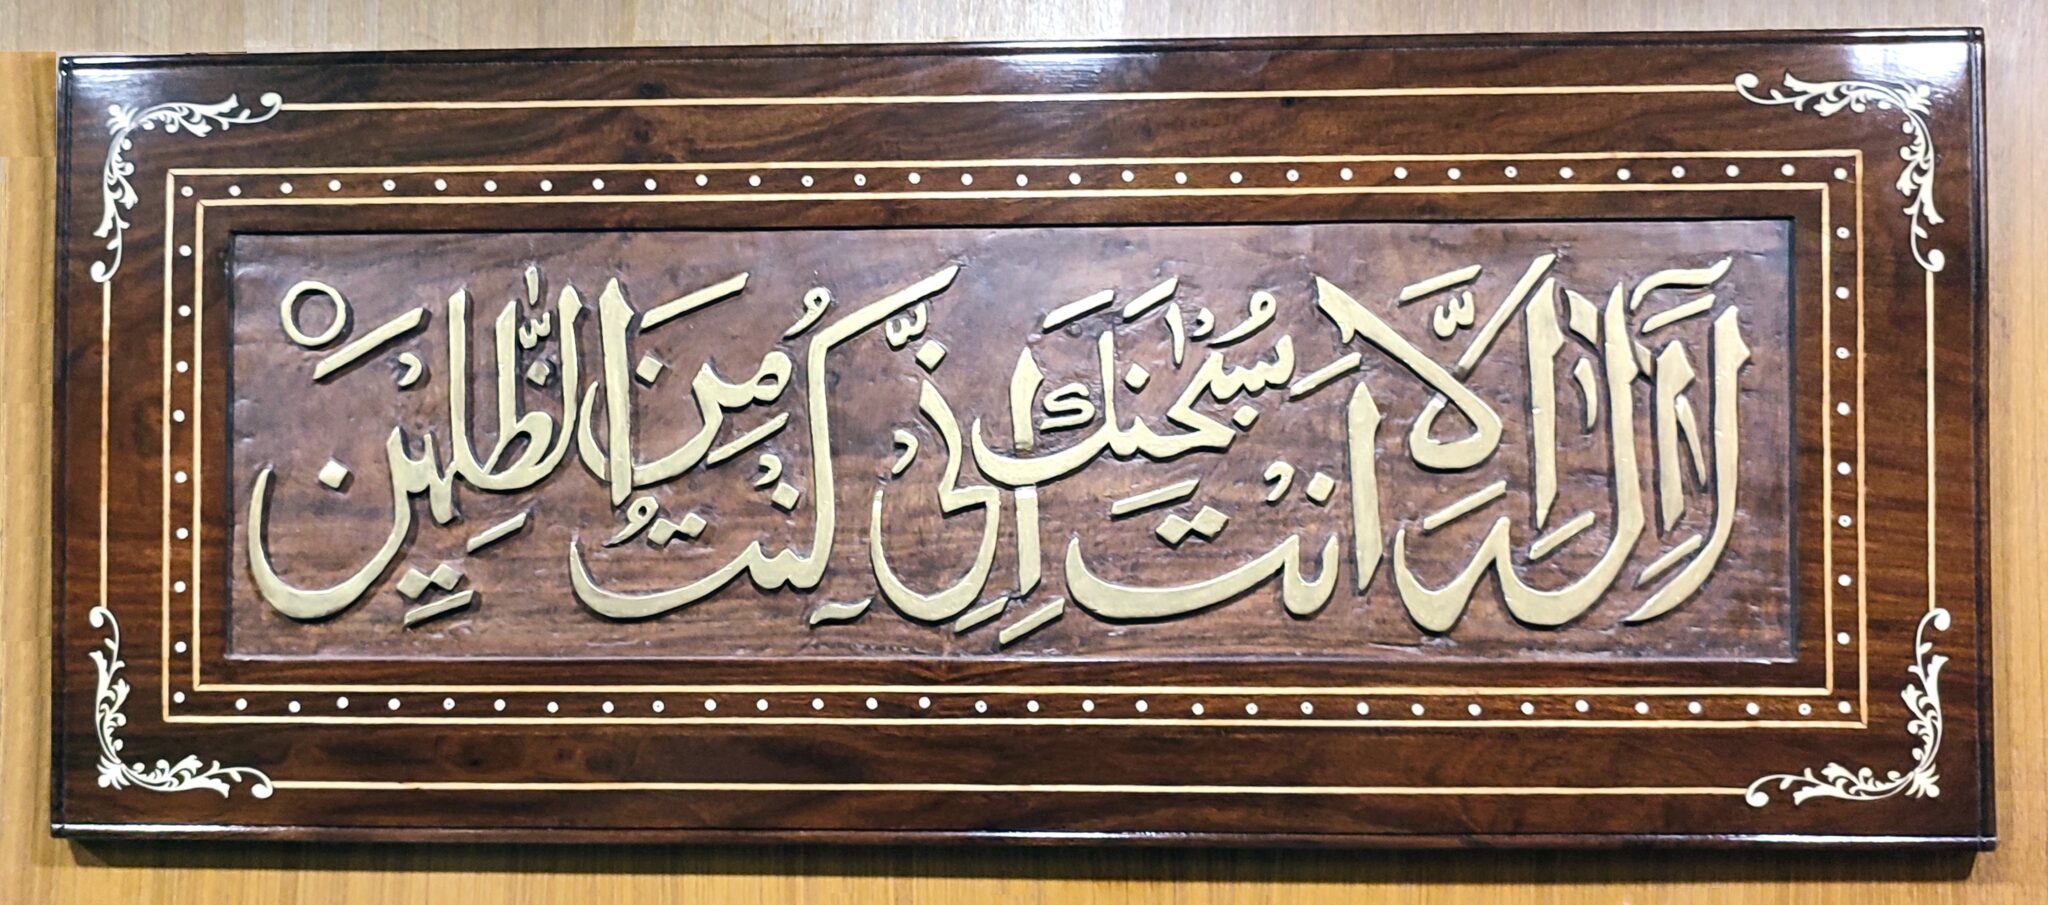 لَآ اِلٰهَ اِلَّآ اَنْتَ سُبْحٰنَكَ اِنِّىْ كُنْتُ مِنَ الظّٰلِمِيْنَ